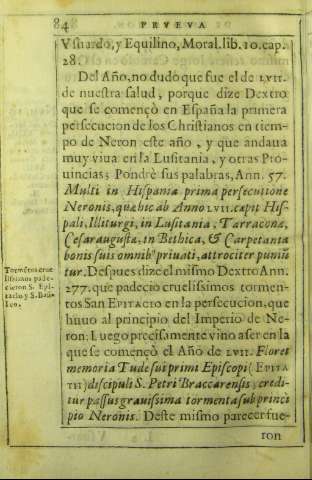 84 PRVEVA
Vsuardo, y Equilino, Moral. lib. 10. cap.
28.
Del Año, no dudo que fue el de LVII.
de nuestra salud, porque dize Dextro
que se començò en España la primera
persecucion de los Christianos en tiem-
po de Neron este año, y que andaua
muy viua en la Lusitania, y otras Pro-
uincias; Pondrè sus palabras, Ann. 57.
Multi in Hispania prima persecutione
Neronis, quæ hic ab Anno LVII. capit His-
pali, Illiturgi, in Lusitania, Tarracona,
Cesaraugusta, in Bethica, & Carpetania
bonis suis omnib' priuati, atrociter puniũ
tur. Despues dize el mismo Dextro Ann.
277. que padecio cruelissimos tormen-
tos San EPITACIO en la persecucion, que
huuo al principio del Imperio de Ne-
ron: Luego precisamente vino a ser en la
que se començò el Año de LVII. Floret
memoria Tudesui primi Episcopi (EPITA
TII) discipuli S. Petri Braccarensis; credi-
tur passus grauissima tormenta sub princi
pio Neronis. Deste mismo parecer fue-
ron
Tormẽtos crue
lissimos pade-
cieron S. Epi-
tacio y S. Basi-
leo.